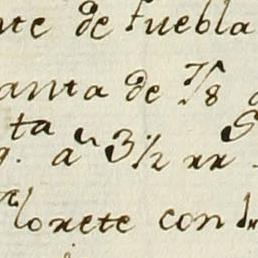 nte de Puebla
anta de 7/8 d
ta
q. a^n 3 1/2 rr S
lorete con